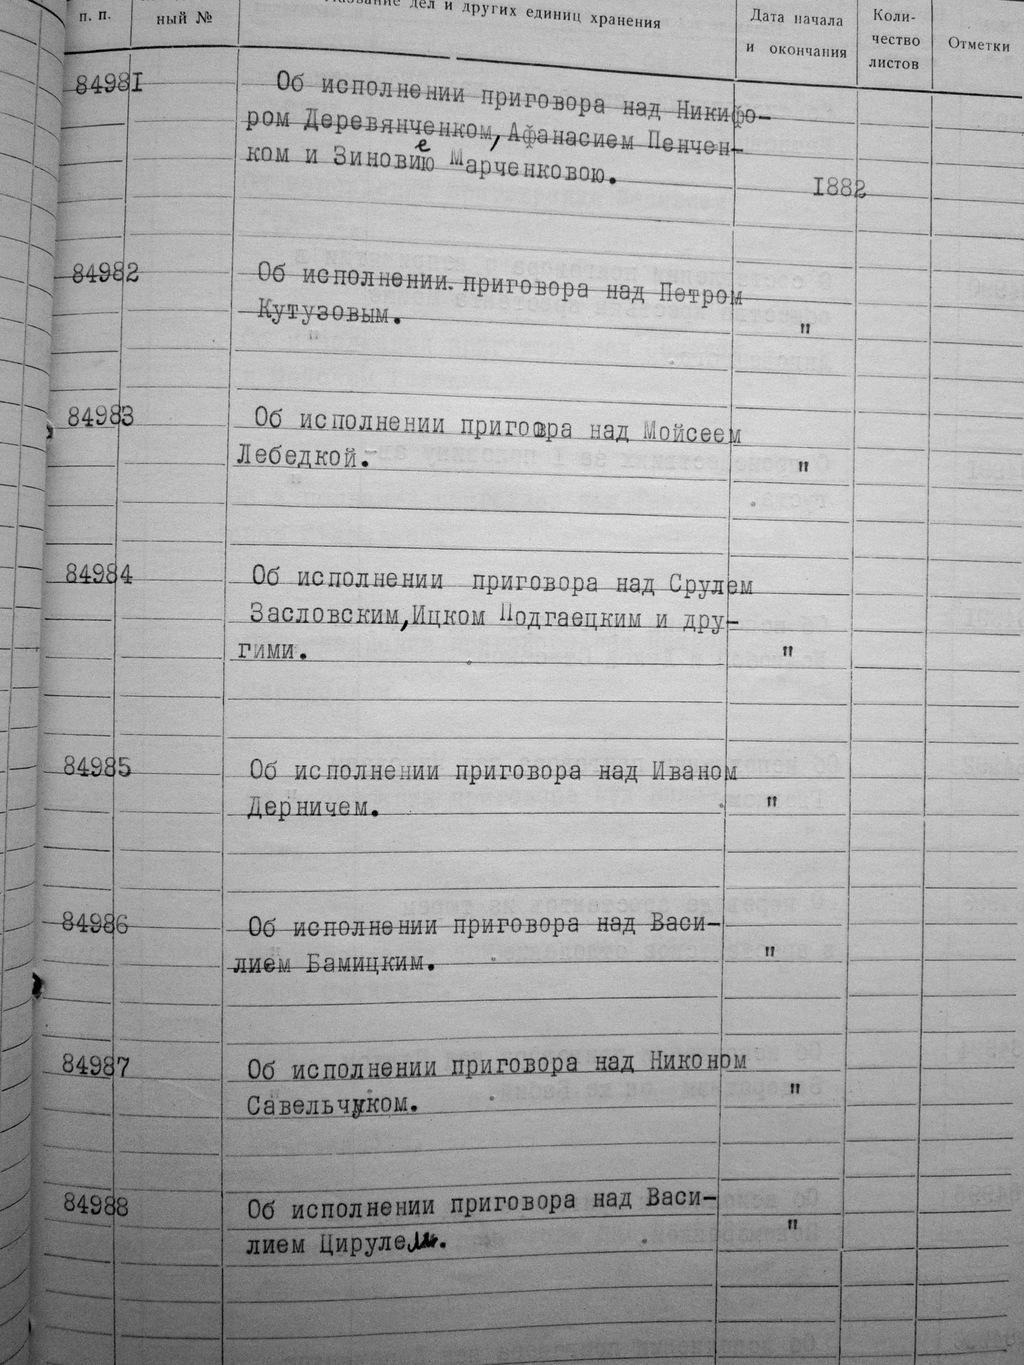 п. п.
ный №
Название дел и других единиц хранения
Дата начала
и окончания
Коли-
чество
листов
Отметки
84981
Об исполнении приговора над Никифо-
ром Деревянченком, Афанасием Пенчен-
ком и Зиновией Марченковою.
1882
84982
Об исполнении приговора над Петром
Кутузовым.
"
84983
Об исполнении пригоовра над Мойсеем
Лебедкой.
"
84984
Об исполнении приговора над Срулем
Засловским, Ицком Подгаецким и дру-
гими.
"
84985
Об исполнении приговора над Иваном
Дерничем.
"
84986
Об исполнении приговора над Васи-
лием Бамицким.
"
84987
Об исполнении приговора над Никоном
Савельчуком.
"
84988
Об исполнении приговора над Васи-
лием Цирулем.
"